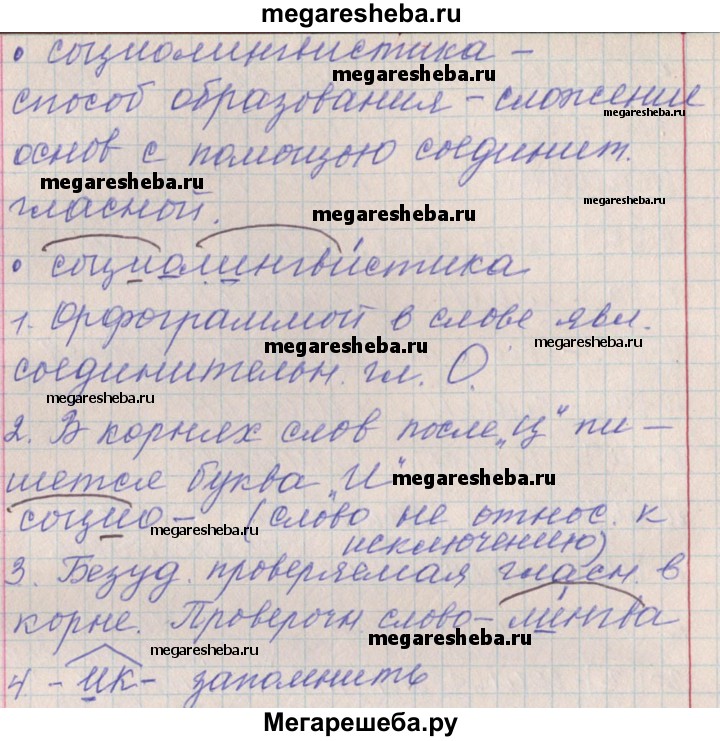 megaresheba.ru
• социолингвистика –
megaresheba.ru
способ образования – сложение
megaresheba.ru
основ с помощью соединит.
megaresheba.ru
гласной.
megaresheba.ru
megaresheba.ru
• социолингвистика
1. Орфограммой в слове явл.
megaresheba.ru
megaresheba.ru
соединительн. гл. О.
megaresheba.ru
2. В корнях слов после „Ц“ пи –
шется буква „И“
megaresheba.ru
социо – (слово не относ. к
megaresheba.ru
исключению)
3. Безуд. проверяемая гласн. в
корне. Проверочн слово – лингва
megaresheba.ru
megaresheba.ru
4 – ик – запомнить
Мегарешеба.ру